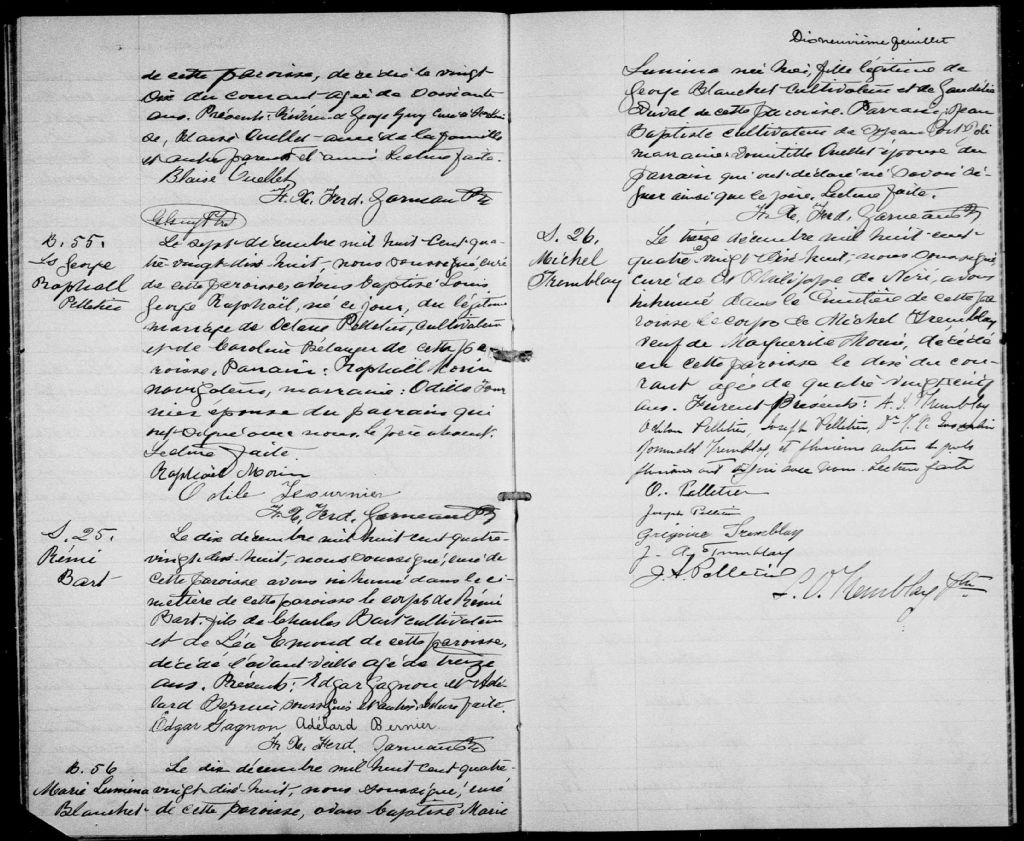 de cette paroisse, décédé le vingt
six du courant agé de soixante
ans. Présents: Révérend George Guy curé
Blaise Ouellet ami de la famille
et autre parent et amis Lecture faite.
Blaise Ouellet
Fr. X. Ferd. Garneau Ptr
G. Guy Ptre
B. 55.
Ls George
Raphaël
Pelletier
Le sept décembre mil huit cent qua-
tre-vingt dix-huit, nous soussigné curé
de cette paroisse, avons baptisé Louis
George Raphaël, né ce jour, du légitime
mariage de Octave Pelletier, cultivateur
et de Caroline Bélanger de cette pa-
roisse. Parrain: Raphaël Morin
navigateur, marraine: Odile Four-
nier épouse du parrain qui
ont signé avec nous, le père absent.
Lecture faite.
Raphael Morin
Odile Fournier
Fr. X. Ferd. Garneau Ptr
S. 25.
Rémi
Bart
Le dix décembre mil huit cent quatre-
vingt-dix-huit, nous soussigné, curé de
cette paroisse avons inhumé dans le ci-
metière de cette paroisse le corps de Rémi
Bart fils de Charles Bart cultivateur
et de Léa Emond de cette paroisse,
décédé l'avant-veille agé de treize
ans. Présents: Edgar Gagnon et Adé-
lard Bernier soussignés et autres. Lecture faite.
Edgar Gagnon Adélard Bernier
Fr. X. Ferd. Garneau Ptr
B. 56
Marie Lumina
Blanchet
Le dix décembre mil huit cent quatre-
vingt dix-huit, nous soussigné, curé
de cette paroisse, avons baptisé Marie
Dixneuvième feuillet
Lumina née hier, fille légitime de
George Blanchet Cultivateur et de
Duval de cette paroisse. Parrain, Jean
Baptiste cultivateur de St Jean Port Joli
marraine Domitille Ouellet épouse du
parrain qui ont déclaré ne savoir si-
gner ainsi que le père, Lecture faite.
Fr. X. Ferd. Garneau Ptr
S. 26.
Michel
Tremblay
Le treize décembre mil huit-cent
quatre vingt dix huit, nous soussigné
curé de St Philippe de Néri, avons
inhumé dans le Cimetière de cette pa-
roisse le corps de Michel Tremblay
veuf de Marguerite décédé
en cette paroisse le dix du cou-
rant agé de quatre vingt cinq
ans. Furent Présents: A. Tremblay
Odilon Pelletier, Joseph Pelletier,
Tremblay, et plusieurs autres
plusieurs ont signé avec nous. Lecture faite
O. Pelletier
Joseph Pelletier
Grégoire Tremblay
J. A. Tremblay
J A Pelletier
L. O. Tremblay Ptre